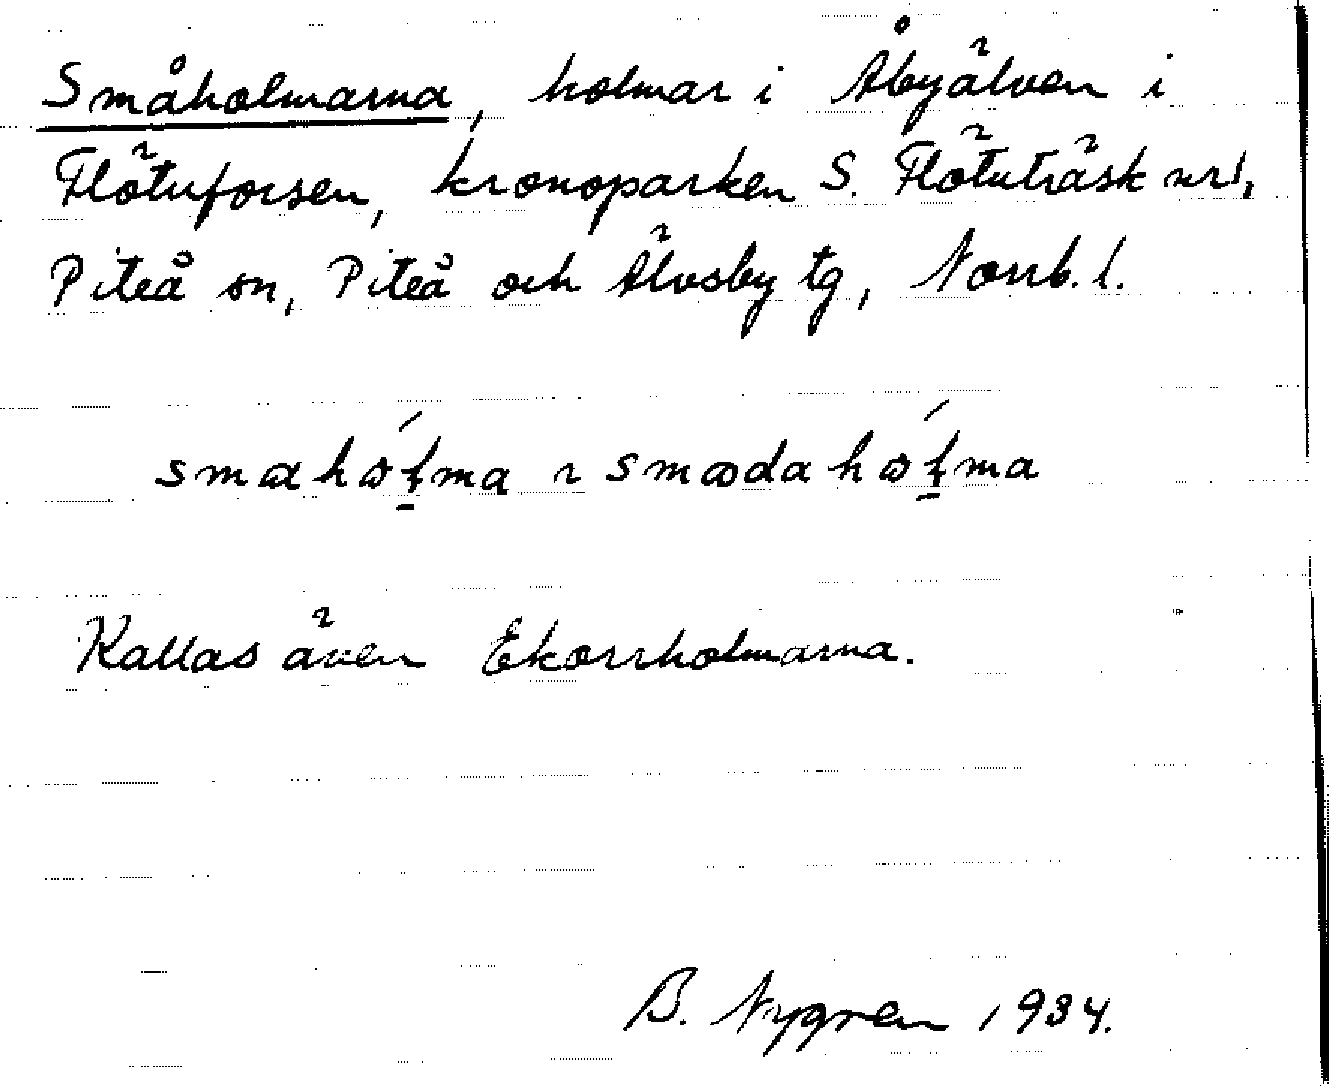 Småholmarna, holmar i Åbyälven i
Flötuforsen, kronoparken S. Flötuträsk nr 1,
Piteå sn, Piteå och Älvsby tg, Norrb. l.
Kallas även Ekorrholmarna.
B. Nygren 1934.